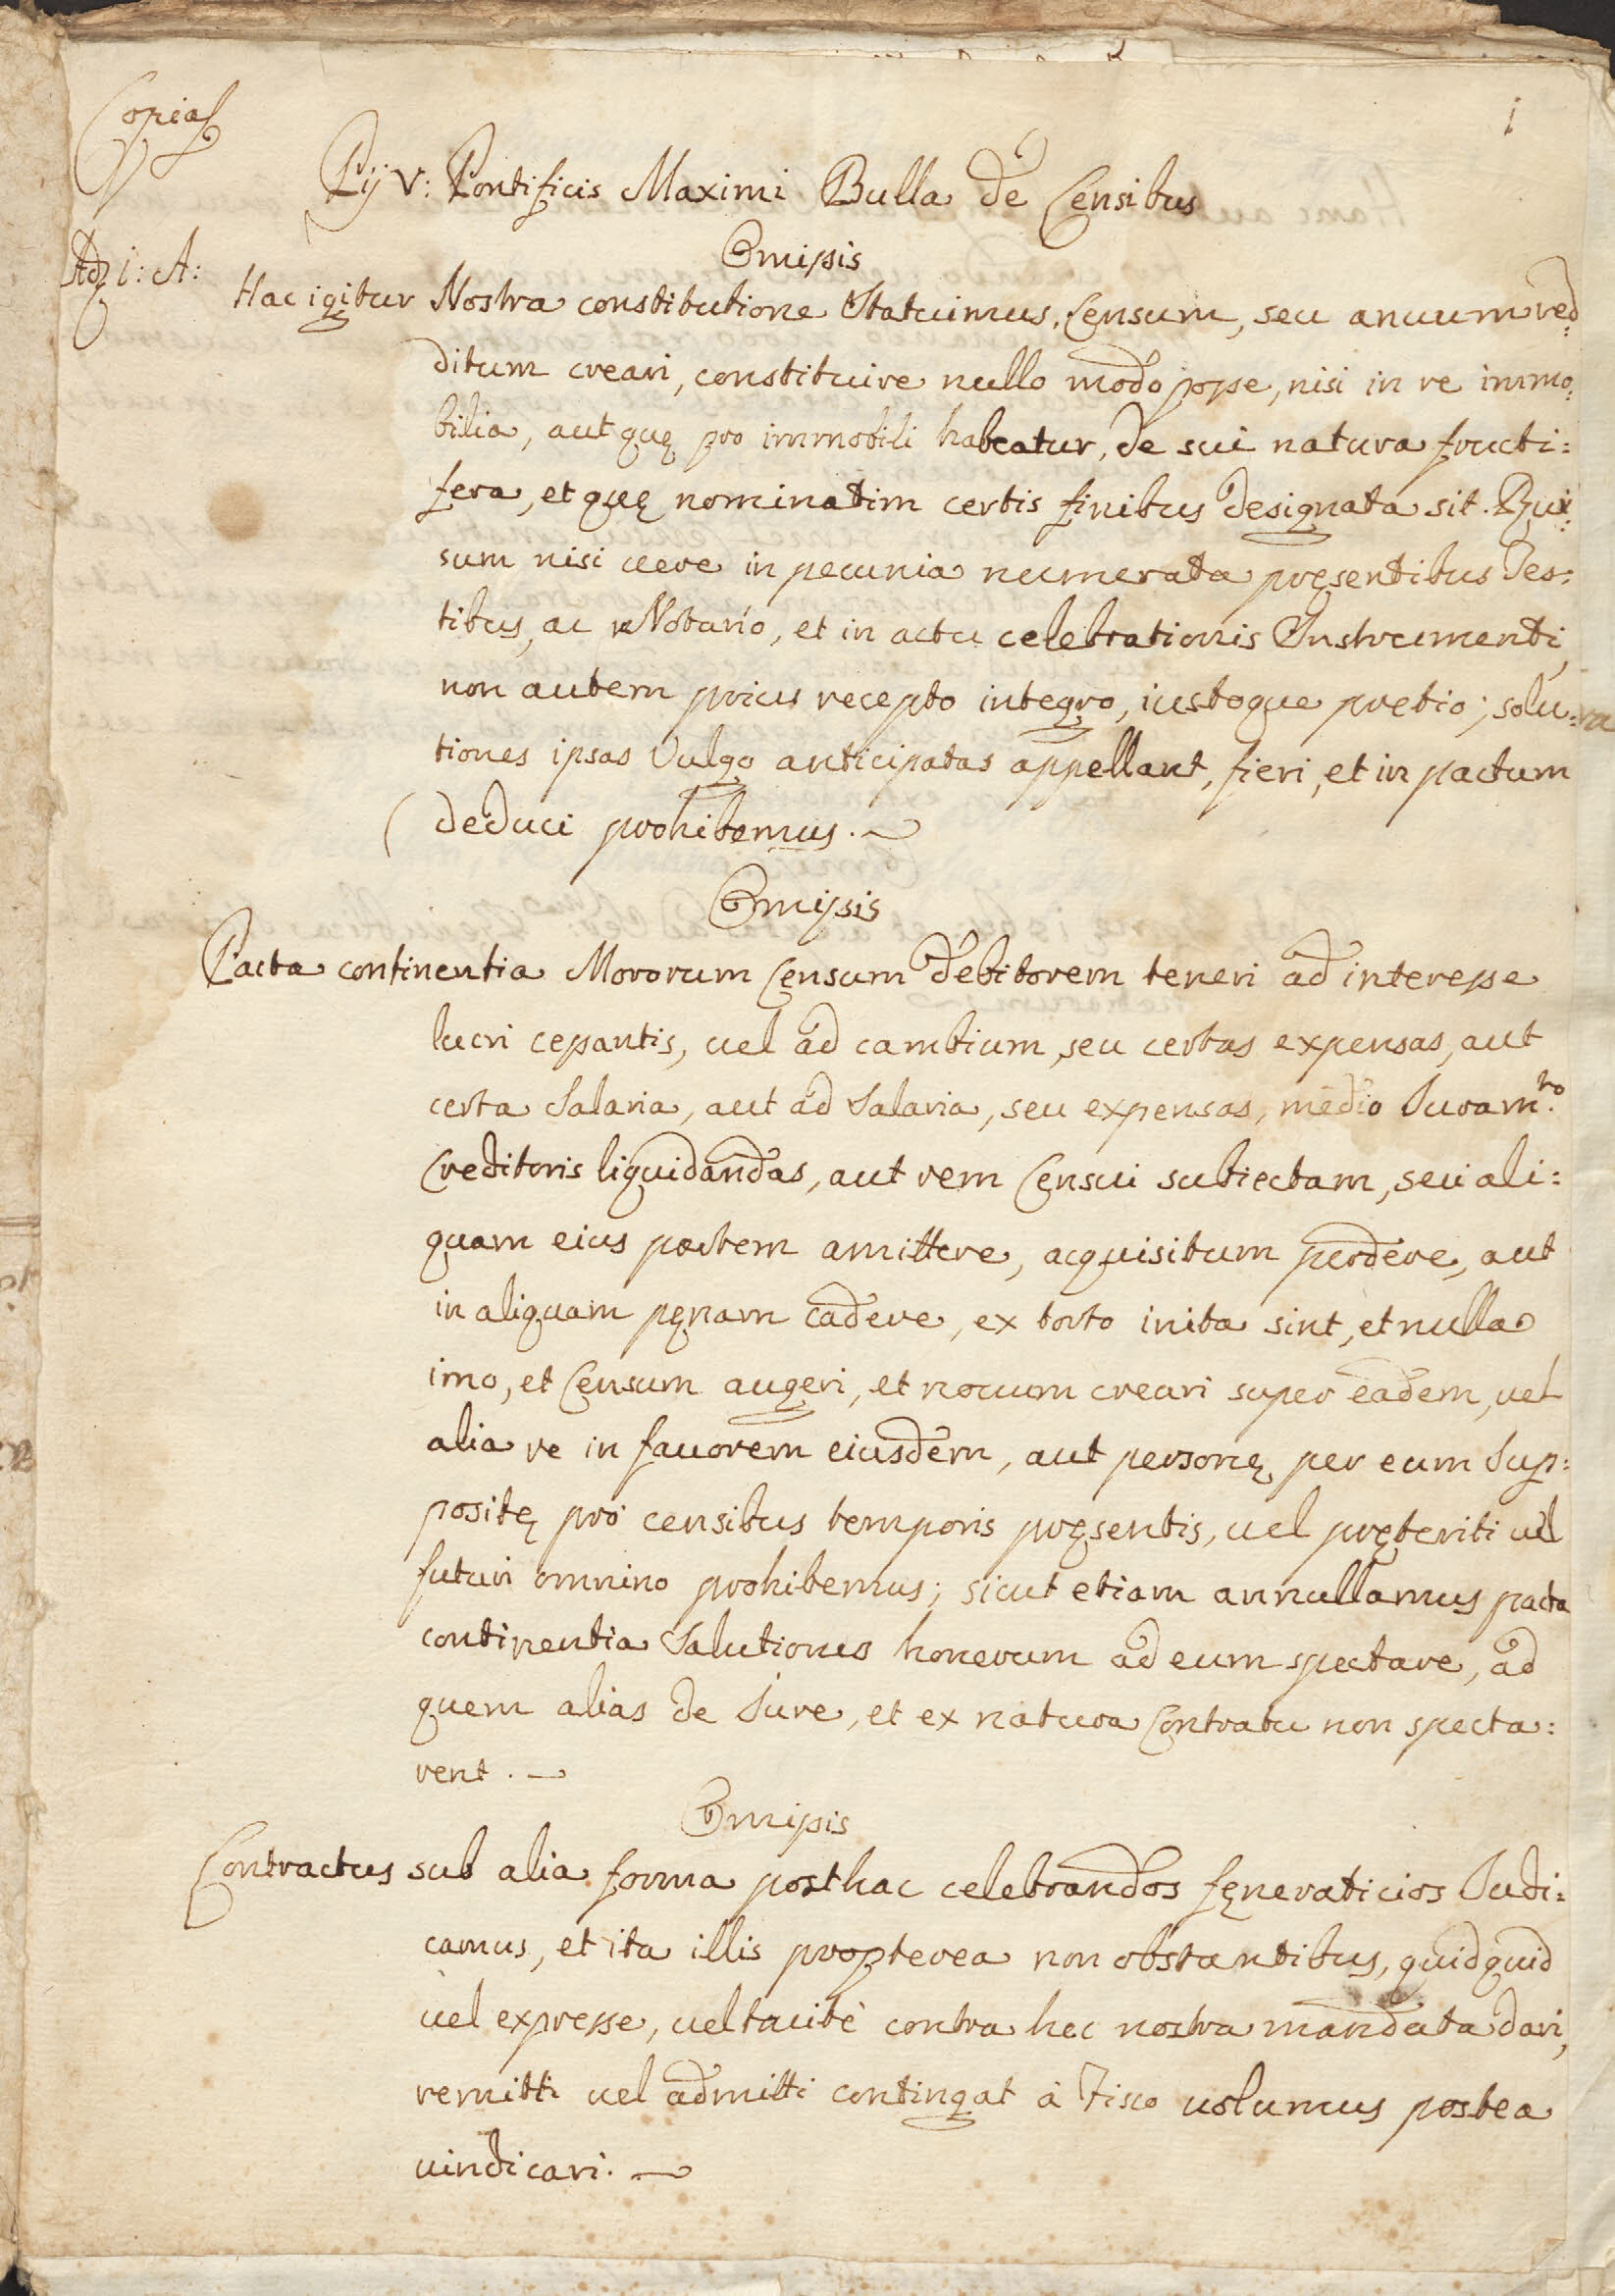 Copia
1
Pij V: Pontificis Maximi Bulla de Censibus
Omissis
Adz 1: A:
Hac igitur Nostra constitutione Statuimus, Censum, seu anuum red=
ditum creari, constituire nullo modo posse, nisi in re immo=
bilia, aut quę pro immobili habeatur, de sui natura fructi=
fera, et quę nominatim certis finibus designata sit. Rur=
sum nisi uere in pecunia numerata pręsentibus Tes=
tibus, ac Notario, et in actu celebrationis Instrumenti,
non autem prius recepto integro, iustoque pretio; solu=
tiones ipsas Vulgo anticipatas appellant, fieri, et in pactum
deduci prohibemus.
Omissis
Pacta continentia Mororum Censum debitorem teneri ad interesse
lucri cessantis, uel ad cambium, seu certas expensas, aut
certa Salaria, aut ad Salaria, seu expensas, medio Juram.to
Creditoris liquidandas, aut rem Censui subiectam, seu ali=
quam eius partem amittere, acquisitum perdere, aut
in aliquam pęnam cadere, ex torto inita sint, et nulla
imo, et Censum augeri, et nouum creari super eadem, uel
alia re in fauorem eiusdem, aut personę per eum Sup=
positę pro censibus temporis pręsentis, uel pręteriti uel
futuri omnino prohibemus; sicut etiam annullamus pacta
continentia Salutiones honerum ad eum spectare, ad
quem alias de Jure, et ex natura Contratu non specta=
rent.
Omissis
Contractus sub alia forma posthac celebrandos fęneraticios Judi=
camus, et ita illis propterea non obstantibus, quidquid
uel expresse, uel tacitè contra hec nostra mandata dari,
remitti uel admitti contingat à Fisco uolumus postea
uindicari.